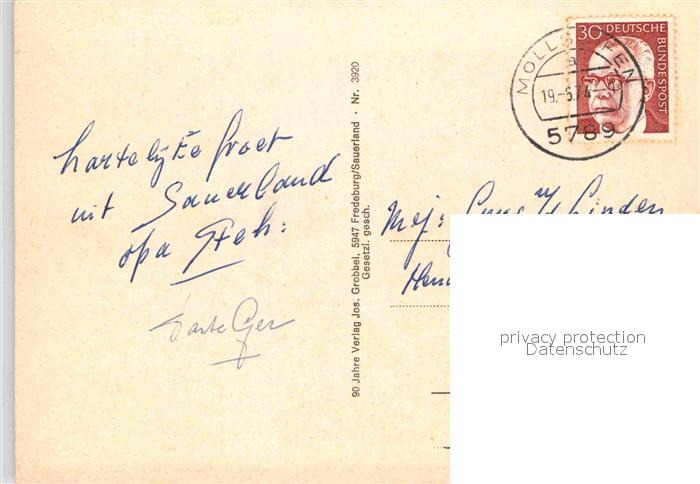 hartelijke groet
uit Sauerland
opa
tante Ger
90 Jahre Verlag Jos. Grobbel, 5947 Fredeburg/Sauerland · Nr. 3920
Gesetzl. gesch.
30 DEUTSCHE
BUNDESPOST
a
19.-6.74
5789
Mej:
v/d Linden
privacy protection
Datenschutz